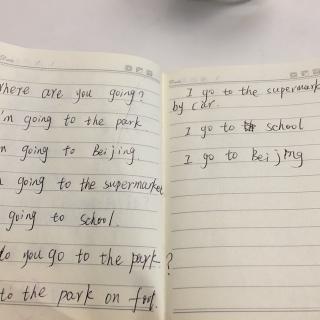 here are you going?
'm going to the park
going to Beijing.
going to the supermarket
going to school.
do you go to the park?
to the park on foot.
I go to the supermark
by car.
I go to school
I go to Beijing